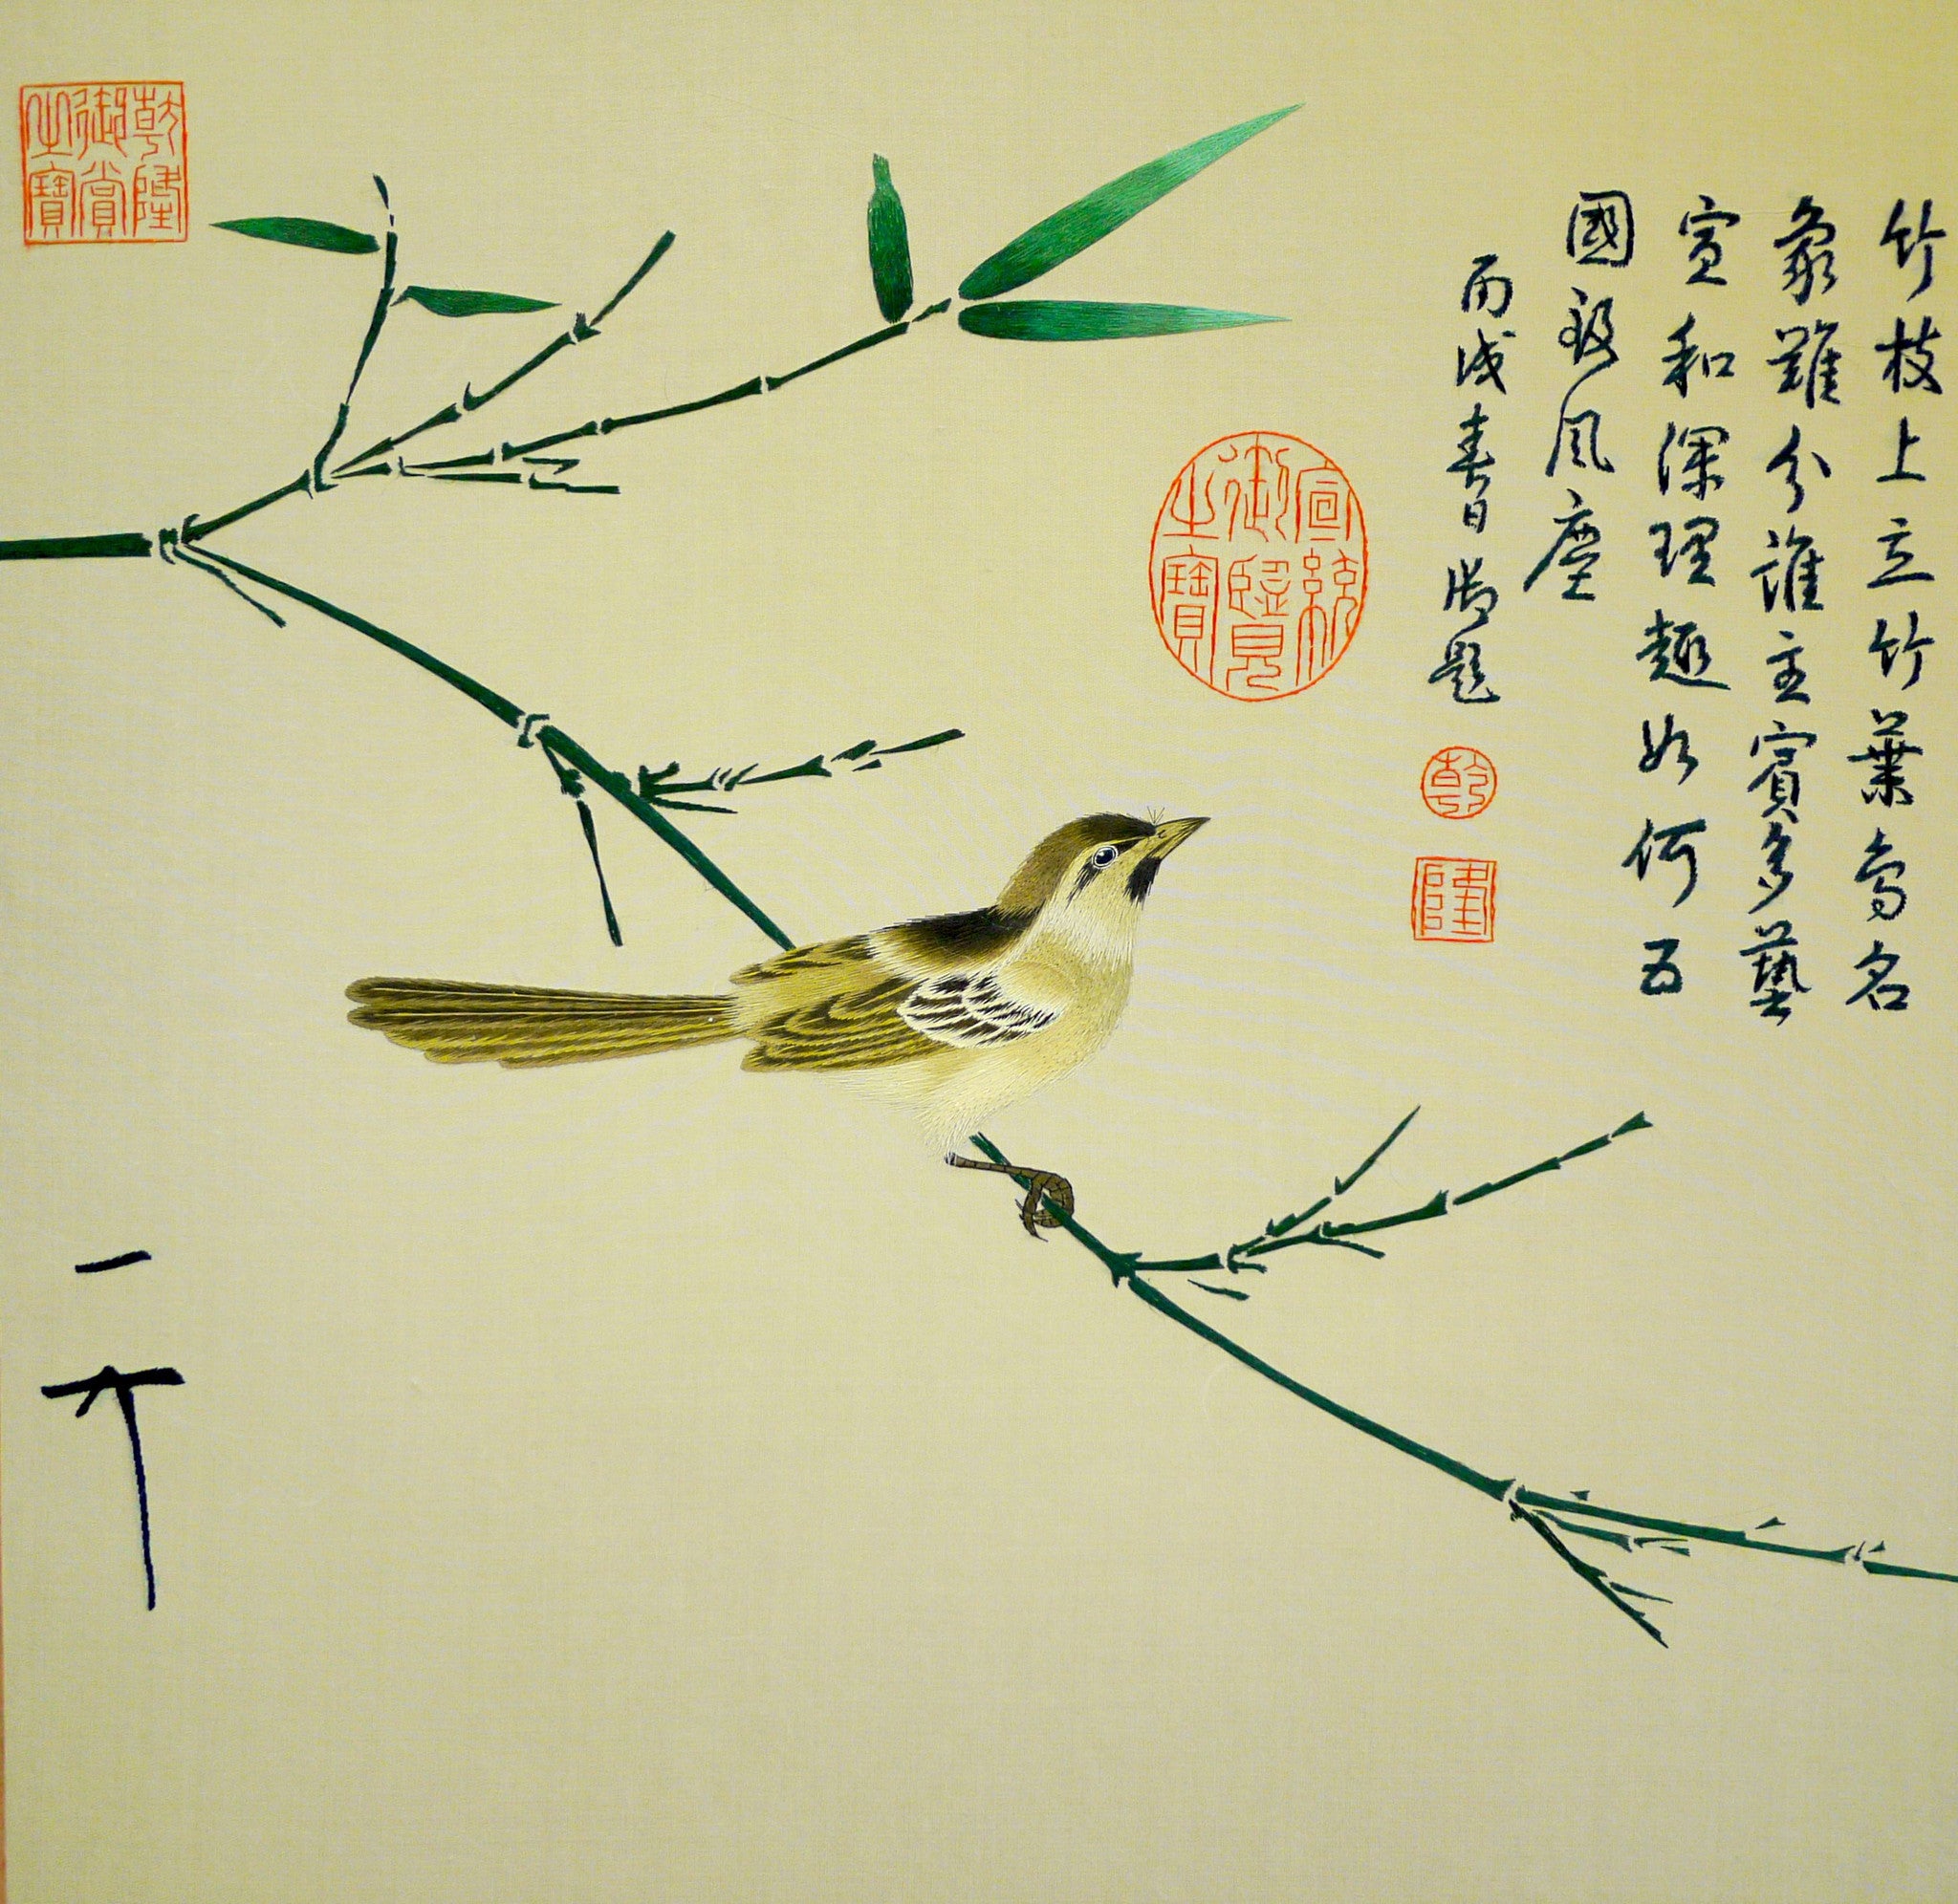 竹枝上立竹葉鳥名
象難分誰主賓多藝
宣和深理趣如何五
國歿風塵
丙戌春日御題
乾
隆
宣統御覽之寶
乾隆御賞之寶